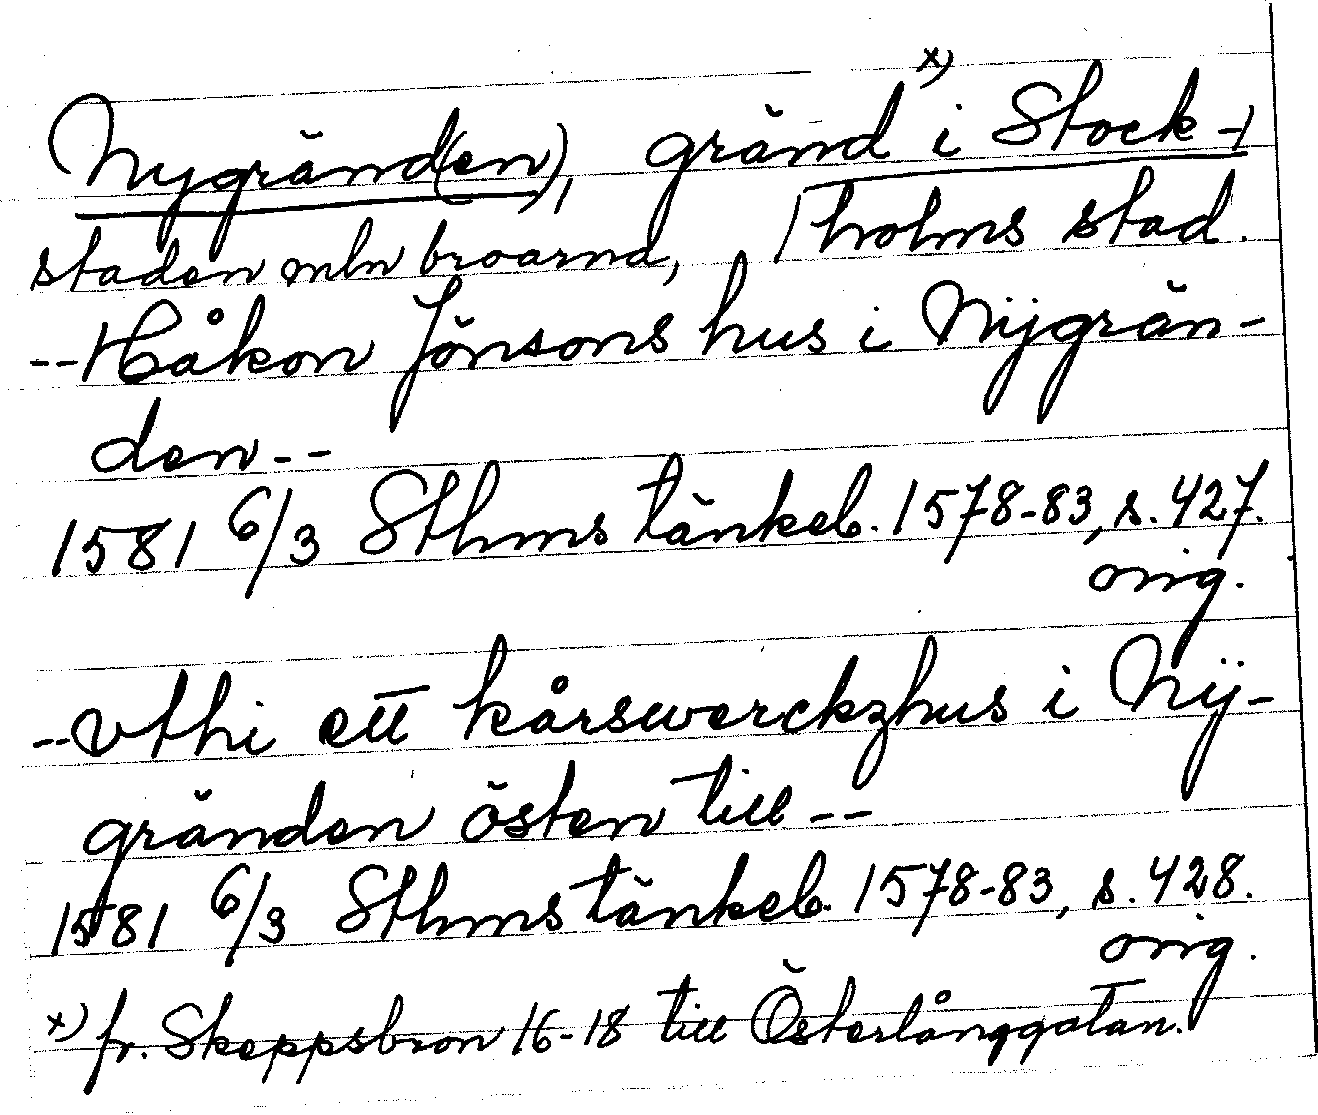 Nygränd(en), gränd x) i Stock-
staden mln broarna, holms stad.
--Håkon Jönsons hus i Nÿgrän-
den--
1581 6/3 Sthms tänkeb. 1578-83, s. 427.
orig.
--vthi ett kårswerckzhus i Nÿ-
gränden östen till--
1581 6/3 Sthms tänkeb. 1578-83, s. 428.
orig.
x) fr. Skeppsbron 16-18 till Österlånggatan.